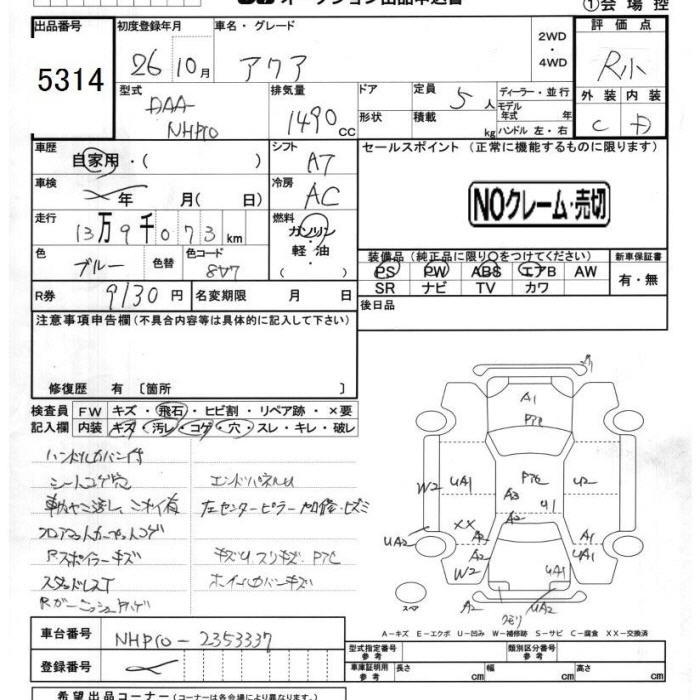 ①会 場 控
出品番号
5314
初度登録年月
26 10月
車名・グレード
アクア
2WD
・
4WD
評 価 点
R小
型式
DAA-
NHP10
排気量
1490 cc
ドア
形状
定員
5 人
積載
kg
ディーラー・並 行
モデル
年式 年
ハンドル 左・右
外 装 内 装
C D
車歴
自家用・( )
シフト
AT
セールスポイント (正常に機能するものに限ります)
NOクレーム・売切
車検
年 月( 日)
冷房
AC
走行
13万9千073 km
燃料
ガソリン
軽 油
・( )
色
ブルー
色替
色コード
8Y7
装備品 (純正品に限り○をつけてください)
PS PW ABS エアB AW
SR ナビ TV カワ
新車保証書
有・無
R券 9130 円
名変期限 月 日
後日品
注意事項申告欄 (不具合内容等は具体的に記入して下さい)
修復歴 有 〔箇所 〕
検査員
記入欄
FW キズ・飛石・ヒビ割・リペア跡・×要
内装 キズ・汚レ・コゲ・穴・スレ・キレ・破レ
ハンドルカバー付
シートコゲ穴
エンドパネルU
左センターピラー加修・ヒズミ
フロアマットカーペットコゲ
Rスポイラーキズ
キズU スリキズ P7C
スタッドレスT
ホイールカバーキズ
A1
P7C
W2
UA1
P7C
A3
U1
A2
U2
UA2
XX
A2
A2
W2
A1
UA1
UA1
A2
UA2
スペア
A−キズ E−エクボ U−凹み W−補修跡 S−サビ C−腐食 XX−交換済
車台番号 NHP10-2353337
登録番号
型式指定番号
参 考
類別区分番号
参 考
車庫証明用
参 考
長さ cm
幅 cm
高さ cm
希望出品コーナー (コーナーは各会場により異なります。)